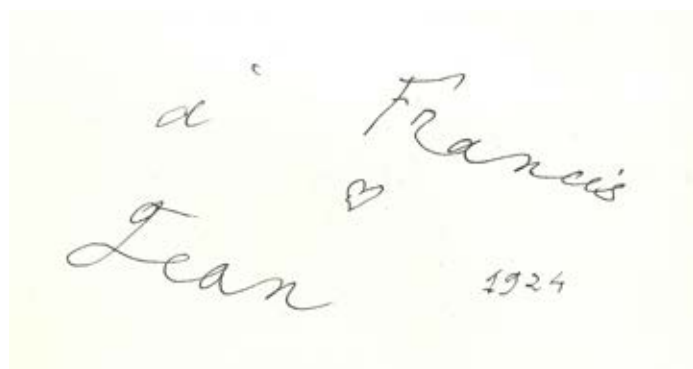 à Francis
♥
Jean
1924